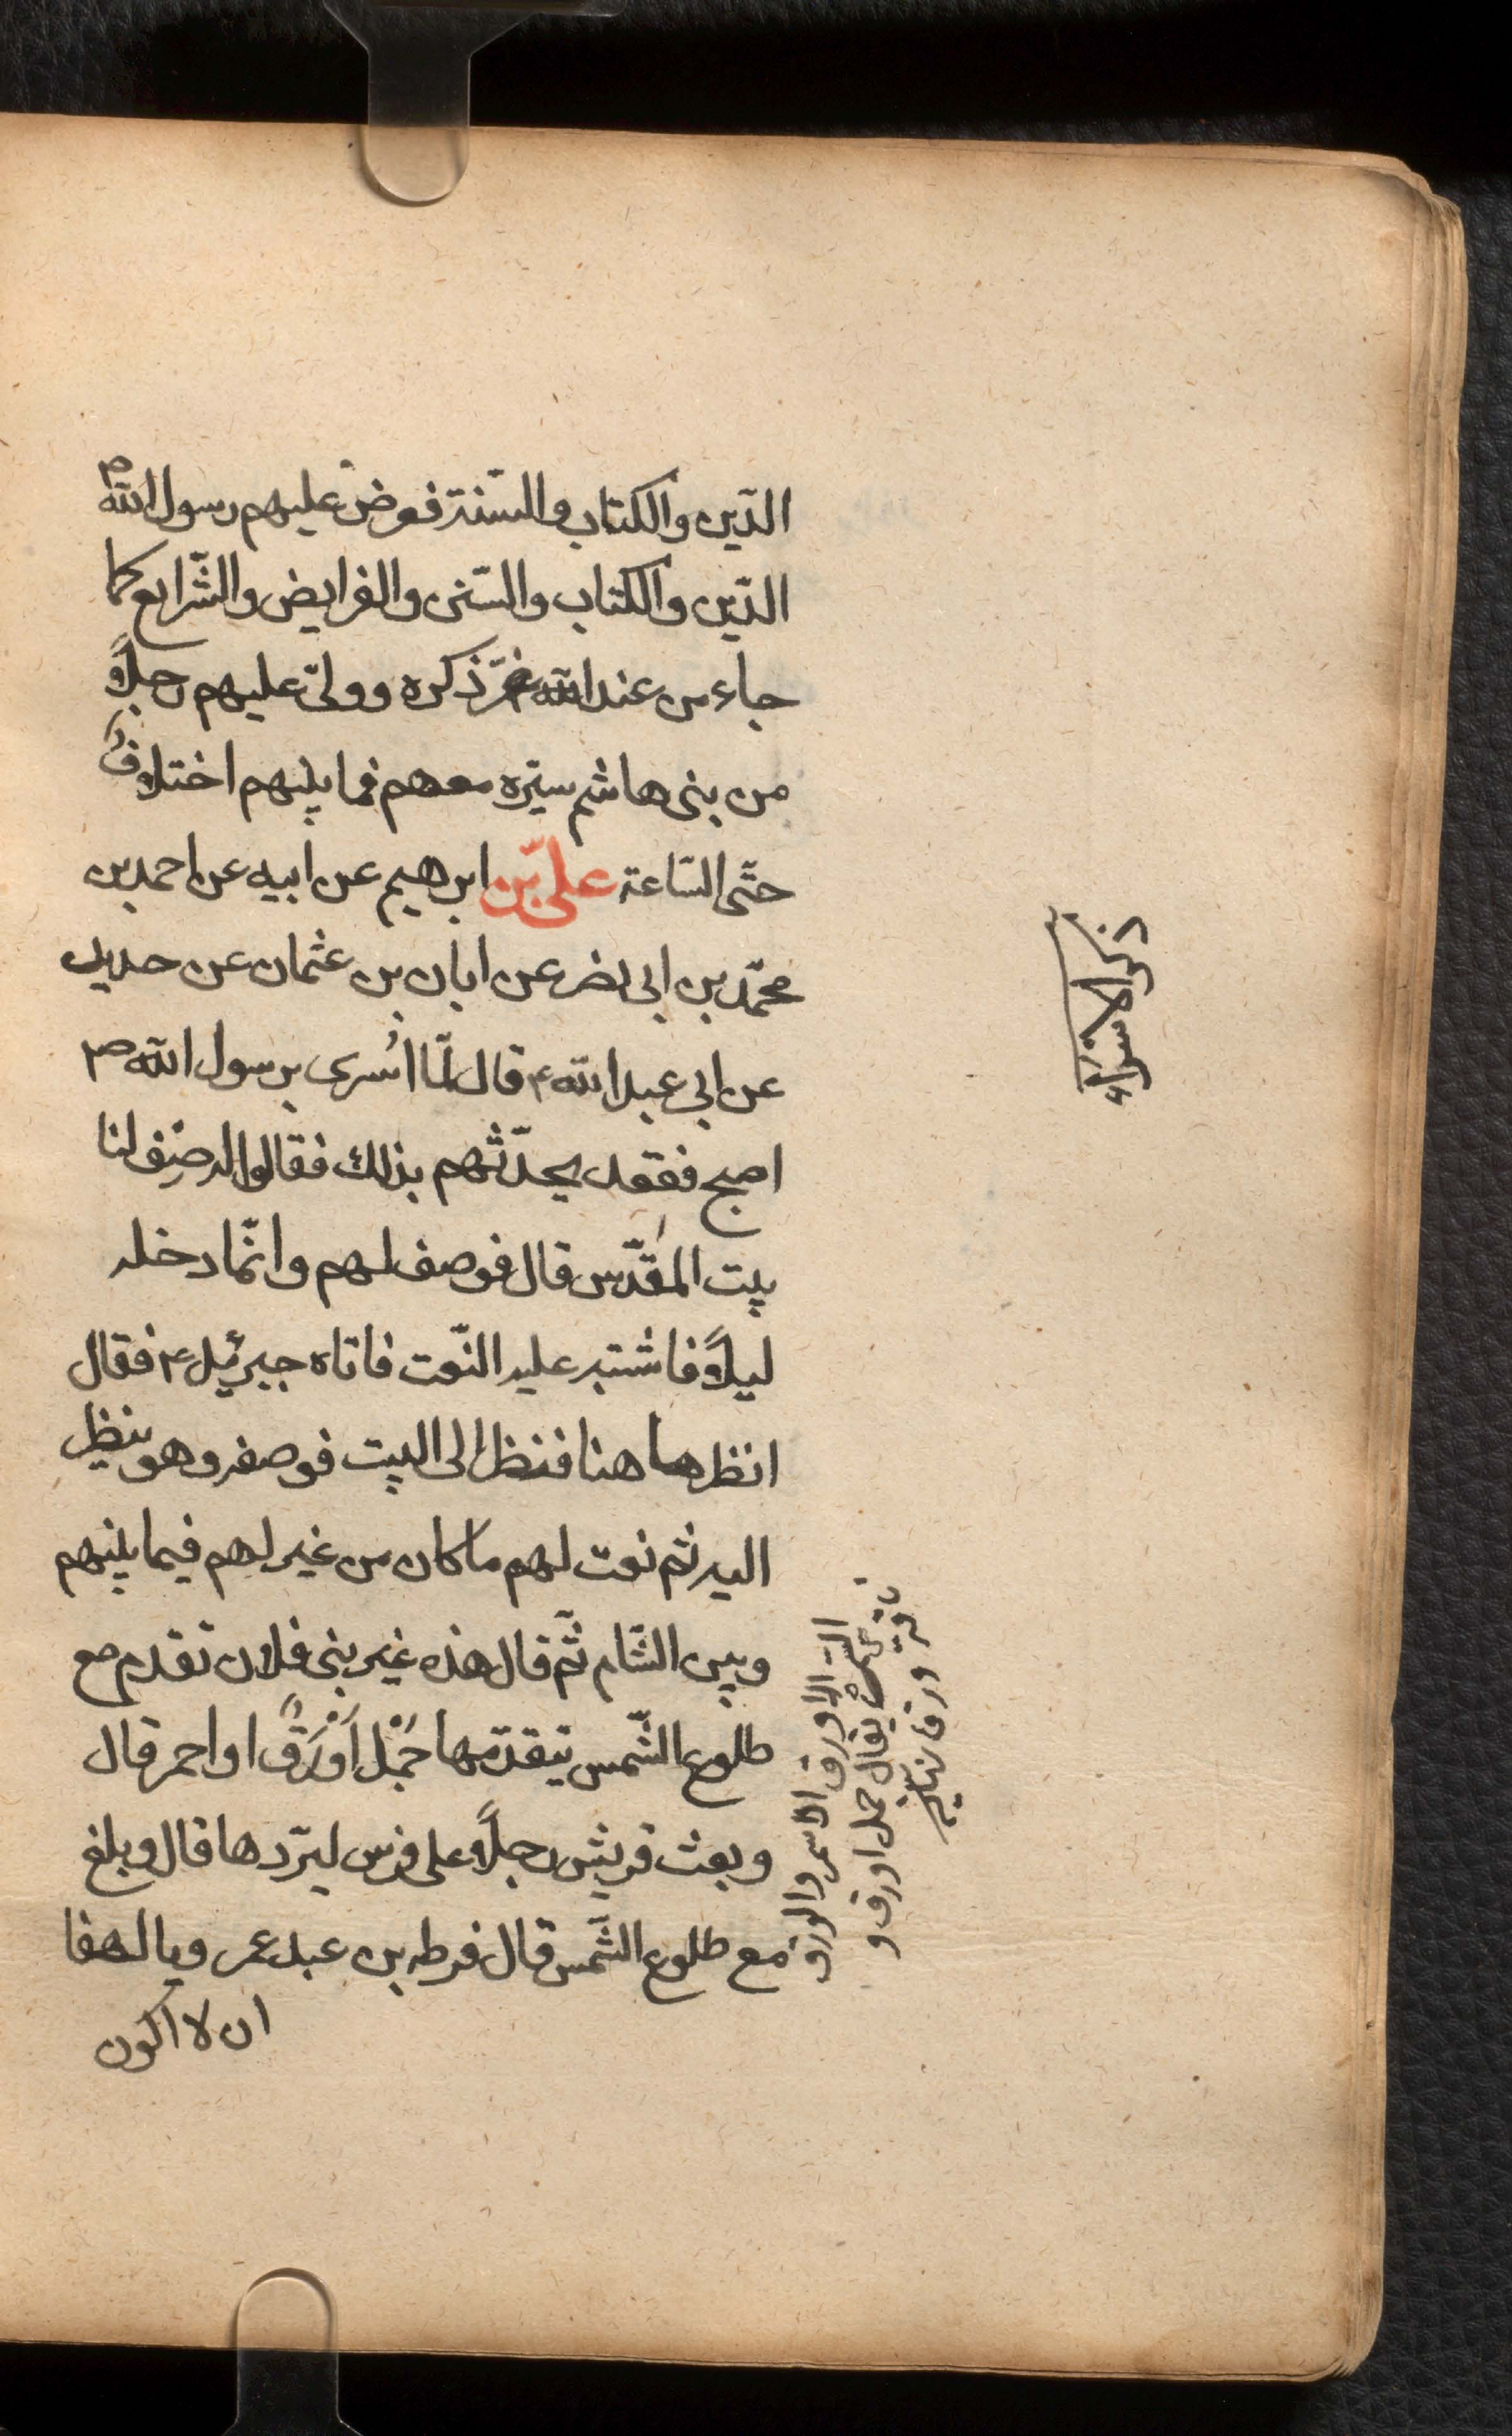 الدّين والكتاب والسّنة فوض عليهم رسول الله ص
الدّين والكتاب والسّنن والفرايض والشّرايع كما
جاء من عند الله عزّ ذكره وولّى عليهم رجلاً
من بنى هاشم سيّره معهم فما بينهم اختلافٌ
حتّى السّاعة علىّ بن ابرهيم عن ابيه عن احمد بن
محمّد بن ابى نصر عن ابان بن عثمان عن حديد
عن ابى عبد الله ع قال لمّا اُسرى برسول الله ص
اصبح فقعد يحدّثهم بذلك فقالوا له صِف لنا
بيت المَقدّس قال فوصف لهم وانّما دخله
ليلاً فاشتبه عليه النّعت فاتاه جبرئيل ع فقال
انظر هاهنا فنظر الى البيت فوصفه وهو ينظر
اليه ثم نعت لهم ما كان من غير لهم فيما بينهم
وبين الشّام ثمّ قال هذه غير بنى فلان تقدم مع
طلوع الشّمس يتقدّمها جَمْل اَوْرَقٌ او احمر قال
وبعث قريش رجلاً على فرس ليرّدها قال وبلغ
مع طلوع الشّمس قال قرطه بن عبد عمر ويا لهفا
ان لا اكون
ذكر الاسراء
الاورق الاسمر والورق
يقال جمل اورق و
ناقة ورقاء